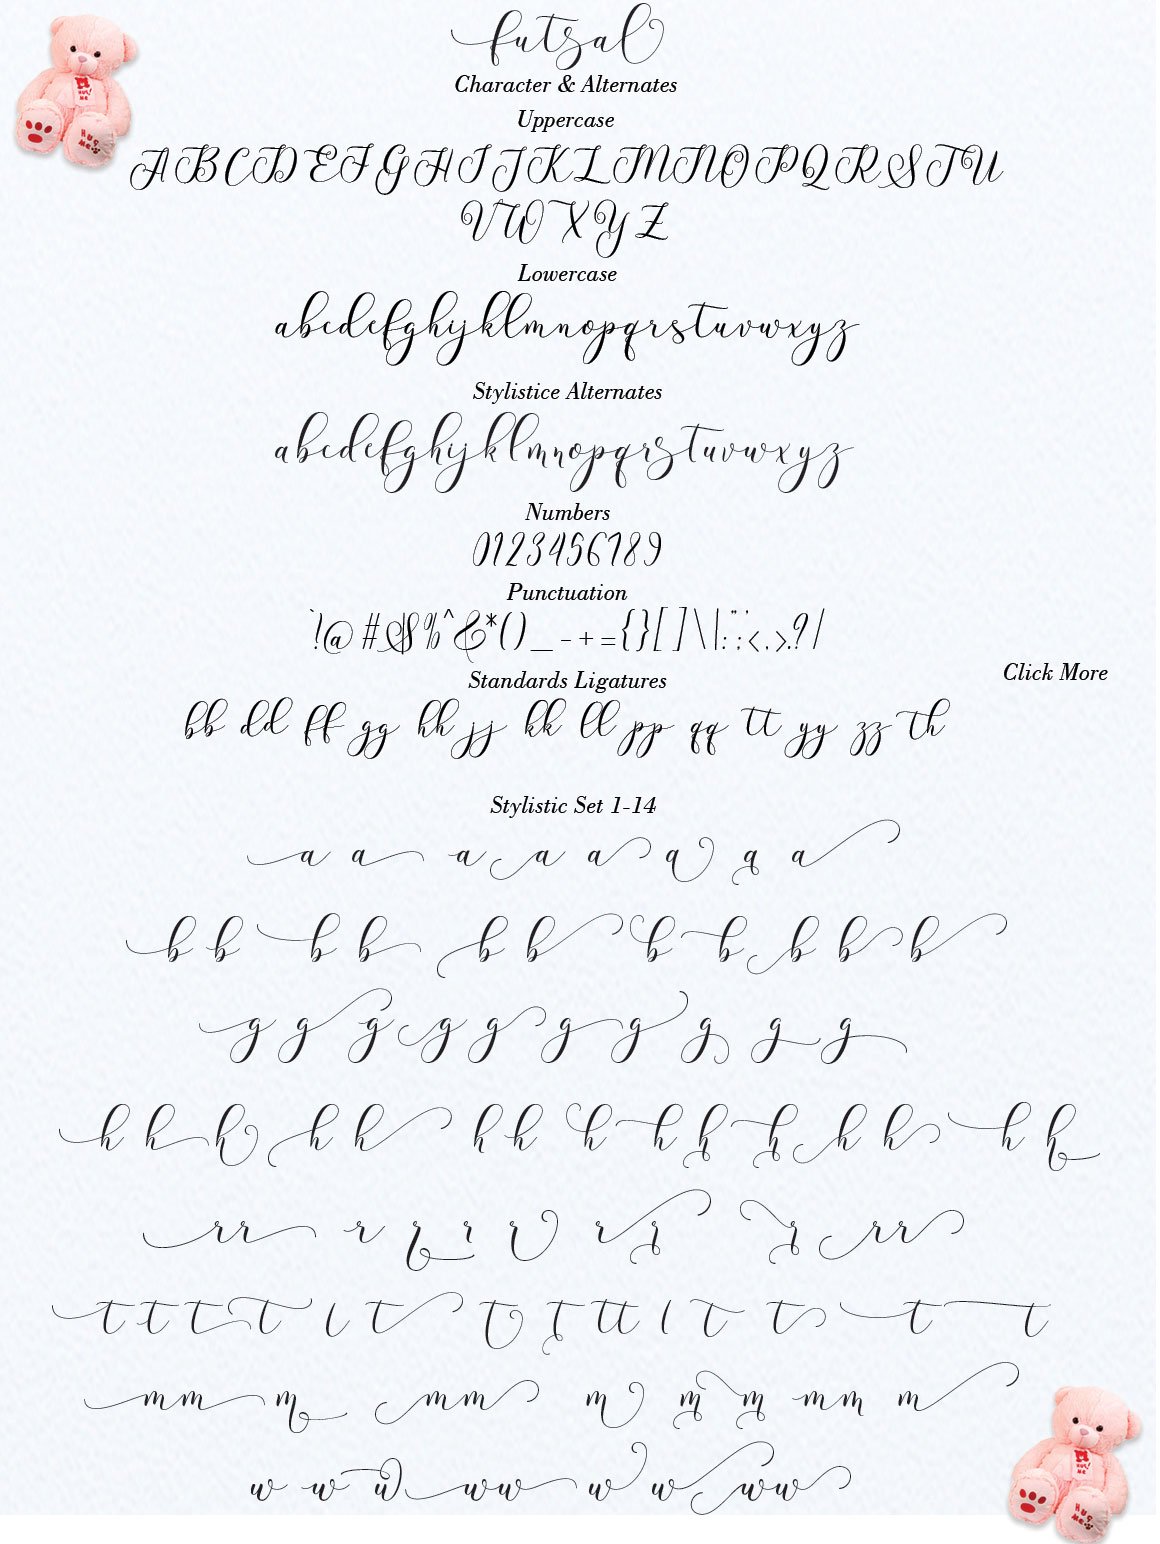 futsal
Character & Alternates
Uppercase
ABCDEFGHIJKLMNOPQRSTU
VWXYZ
Lowercase
abcdefghijklmnopqrstuvwxyz
Stylistice Alternates
abcdefghijklmnopqrstuvwxyz
Numbers
0123456789
Punctuation
`!@#$%^&*()_-+={}[]\|:;"'<,>.?/
Click More
Standards Ligatures
bb dd ff gg hh jj kk ll pp qq tt yy zz th
Stylistic Set 1-14
a a a a a a a a
b b b b b b b b b b b
g g g g g g g g g g
h h h h h h h h h h h h h h h
rr r r r r r r r rr
t t t t l t t t tt l t t t t
mm m mm m m m mm m
w w w ww w w ww
HUG ME
HUG ME
HUG ME
HUG ME